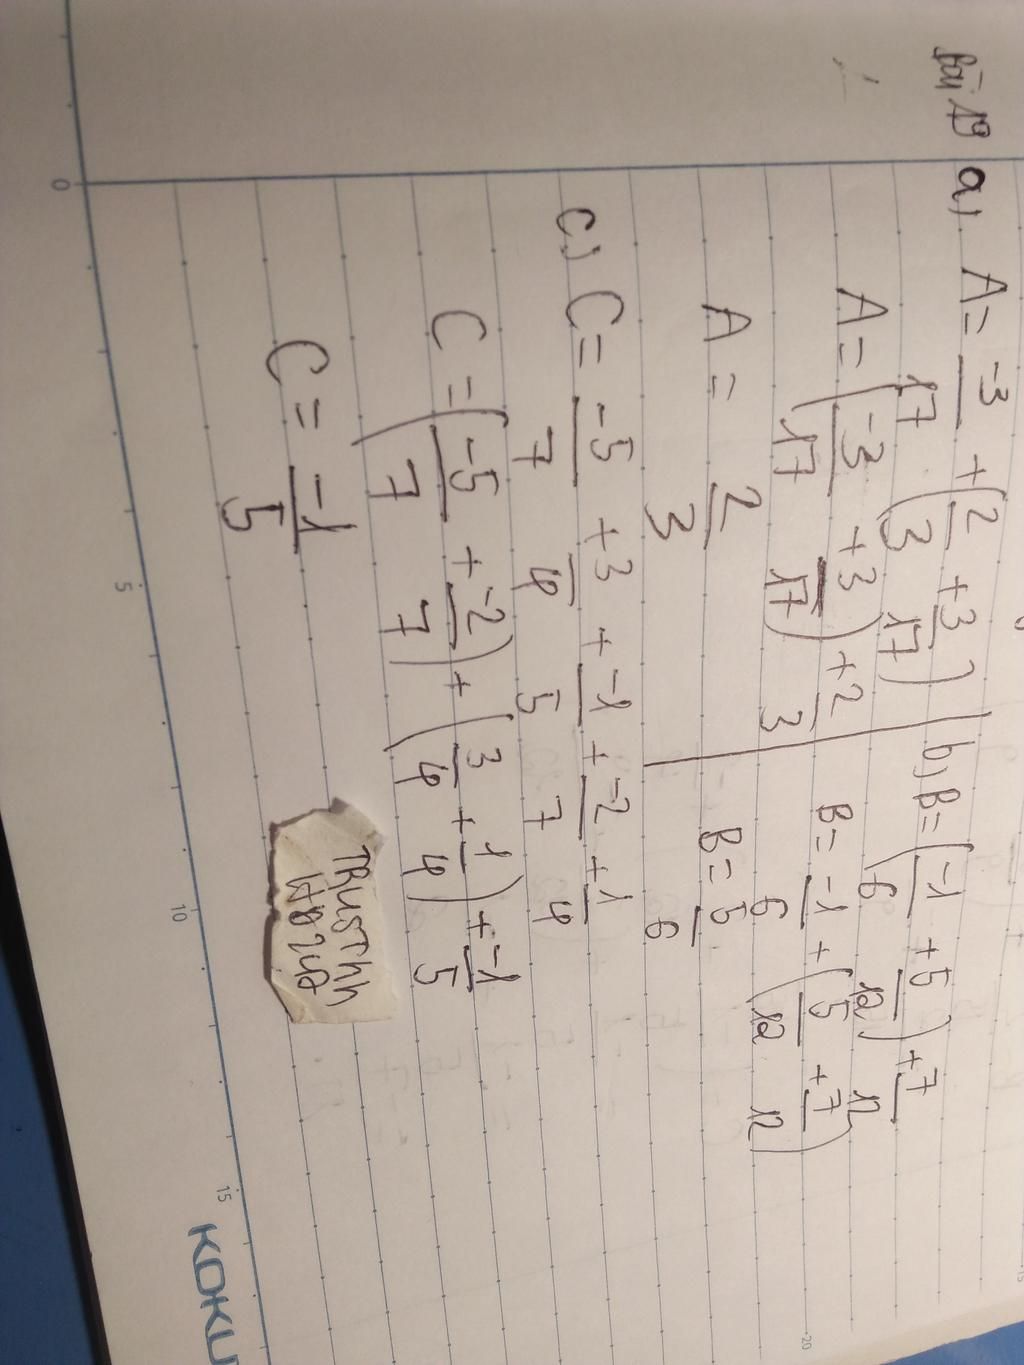 Bài 19 a) A = -3/17 + (2/3 + 3/17)
A = (-3/17 + 3/17) + 2/3
A = 2/3
b) B = (-1/6 + 5/12) + 7/12
B = -1/6 + (5/12 + 7/12)
B = 5/6
c) C = -5/7 + 3/4 + -1/5 + -2/7 + 1/4
C = (-5/7 + -2/7) + (3/4 + 1/4) + -1/5
C = -1/5
0
5
10
15
20
KOKU